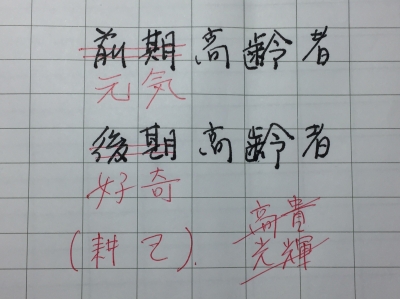 前期高齢者
元気
後期高齢者
好奇
(耕己).
高貴
光輝